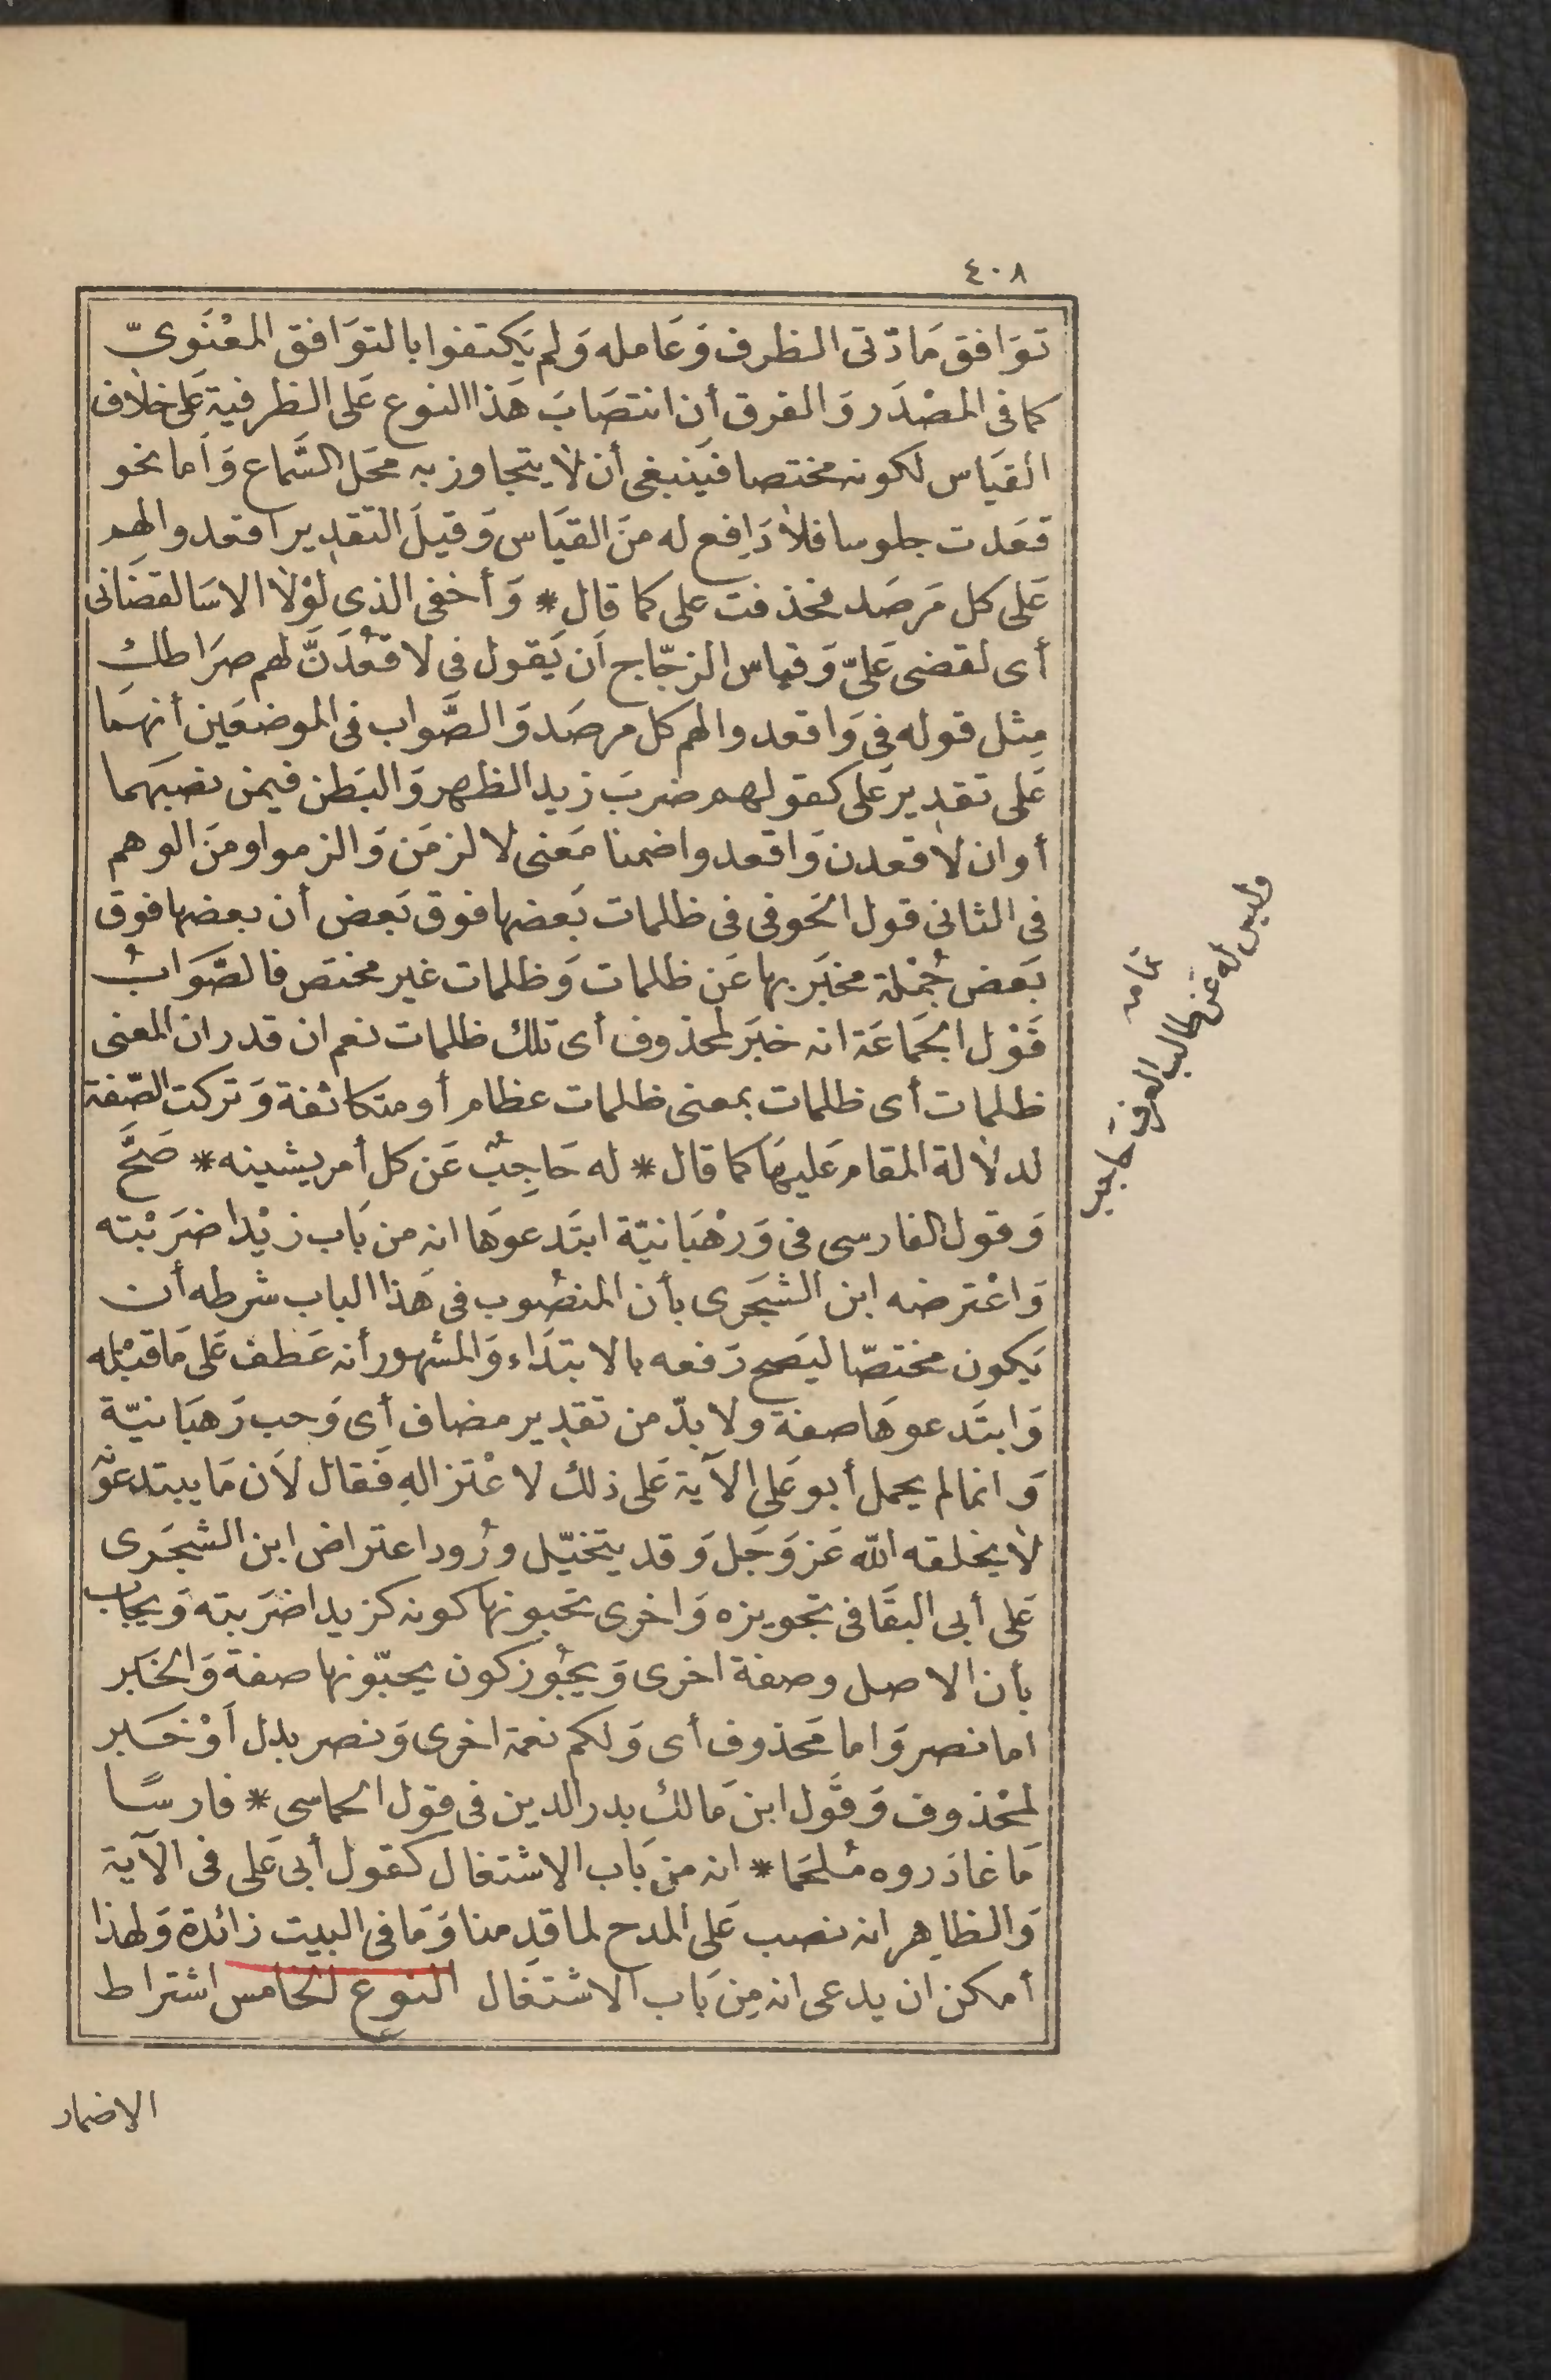 ٤٠٨
توَافق مَادّتى الظرف وَعَامله وَلم يَكتفوا بالتوَافق المعْنَوىّ
كما فى المصْدَر وَالفرق أن انتصَابَ هَذا النوع عَلى الظرفية عَلى خلاف
القيَاس لكونه مختصا فيَنبغى أن لا يتجاوز به محَل السَّماع وَأما نحو
قعَدت جلوسا فلا دَافع له منَ القيَاس وَقيلَ التقدير اقعدوا لهم
عَلى كل مَرصَد فحذفت على كما قال * وَأخفى الذى لوْلا الاسَا لقضَانى
أى لقضى عَلىّ وَقياس الزجّاج أن يَقول فى لاقعُدَنَّ لهم صرَاطك
مِثل قوله فى وَاقعدوا لهم كل مرصَد وَالصَّواب فى الموضعَين أنهمَا
عَلى تقدير عَلى كقولهم ضربَ زيد الظهر وَالبَطن فيمن نصبَهما
أو ان لاقعدن وَاقعدوا ضمنا مَعنى لالزمَن وَالزموا ومنَ الوهم
فى الثانى قول الحَوفى فى ظلمات بَعضها فوق بَعض أن بعضها فوق
بَعض جُمْلة مخبَر بها عَن ظلمات وَظلمات غير مختص فالصَّوَابُ
قَوْل الجَمَاعَة انه خبَر لمحذوف أى تلك ظلمات نعم ان قدر ان المعنى
ظلمات أى ظلمات بمعنى ظلمات عظام أو متكاثفة وَتركت الصّفة
لدلالة المقام عَليهَا كما قال * له حَاجِبٌ عَن كل أمر يشينه * صَحَّ
وَقول الفارسى فى وَرهْبَانيّة ابتَدعوَها انه من بَاب زيْدا ضرَبْته
وَاعْترضه ابن الشجَرى بأن المنصُوب فى هَذا الباب شرطه أن
يَكون مختصّا ليَصح رَفعه بالابتدَاء وَالمشهور أنه عَطف عَلى مَا قبْله
وَابتَدعوهَا صفة ولا بدّ من تقدير مضاف أى وَحب رَهبَانيّة
وَانما لم يحمل أبو عَلى الآية عَلى ذلك لاعْتزاله فَقال لأَن مَا يبتدعونه
لا يخلقه الله عَز وَجَل وَقد يتخيّل ورُود اعتراض ابن الشجَرى
عَلى أبى البقَا فى تجويزه وَاخرى تحبونها كونه كزيدا ضرَبته وَيجاب
بأن الاصل وصفة اخرى وَيجُوز كون يحبّونها صفة وَالخبَر
اما نصر وَاما محَذوف أى وَلكم نعمة اخرى وَنصر بدل أوْ خبَر
لمحْذوف وَقَول ابن مَالك بدر الدين فى قول الحماسى * فارسًا
مَا غادَروه مُلحَما * انه من بَاب الاشتغال كقول أبى عَلى فى الآية
وَالظاهِر انه نصب عَلى المدح لما قدمنا وَمَا فى البيت زائدة وَلهذا
أمكن ان يدعى انه مِن بَاب الاشتغَال النوع الخامس اشتراط
الاضمار
تمامه
وليس له عن طالب العرف حاجب